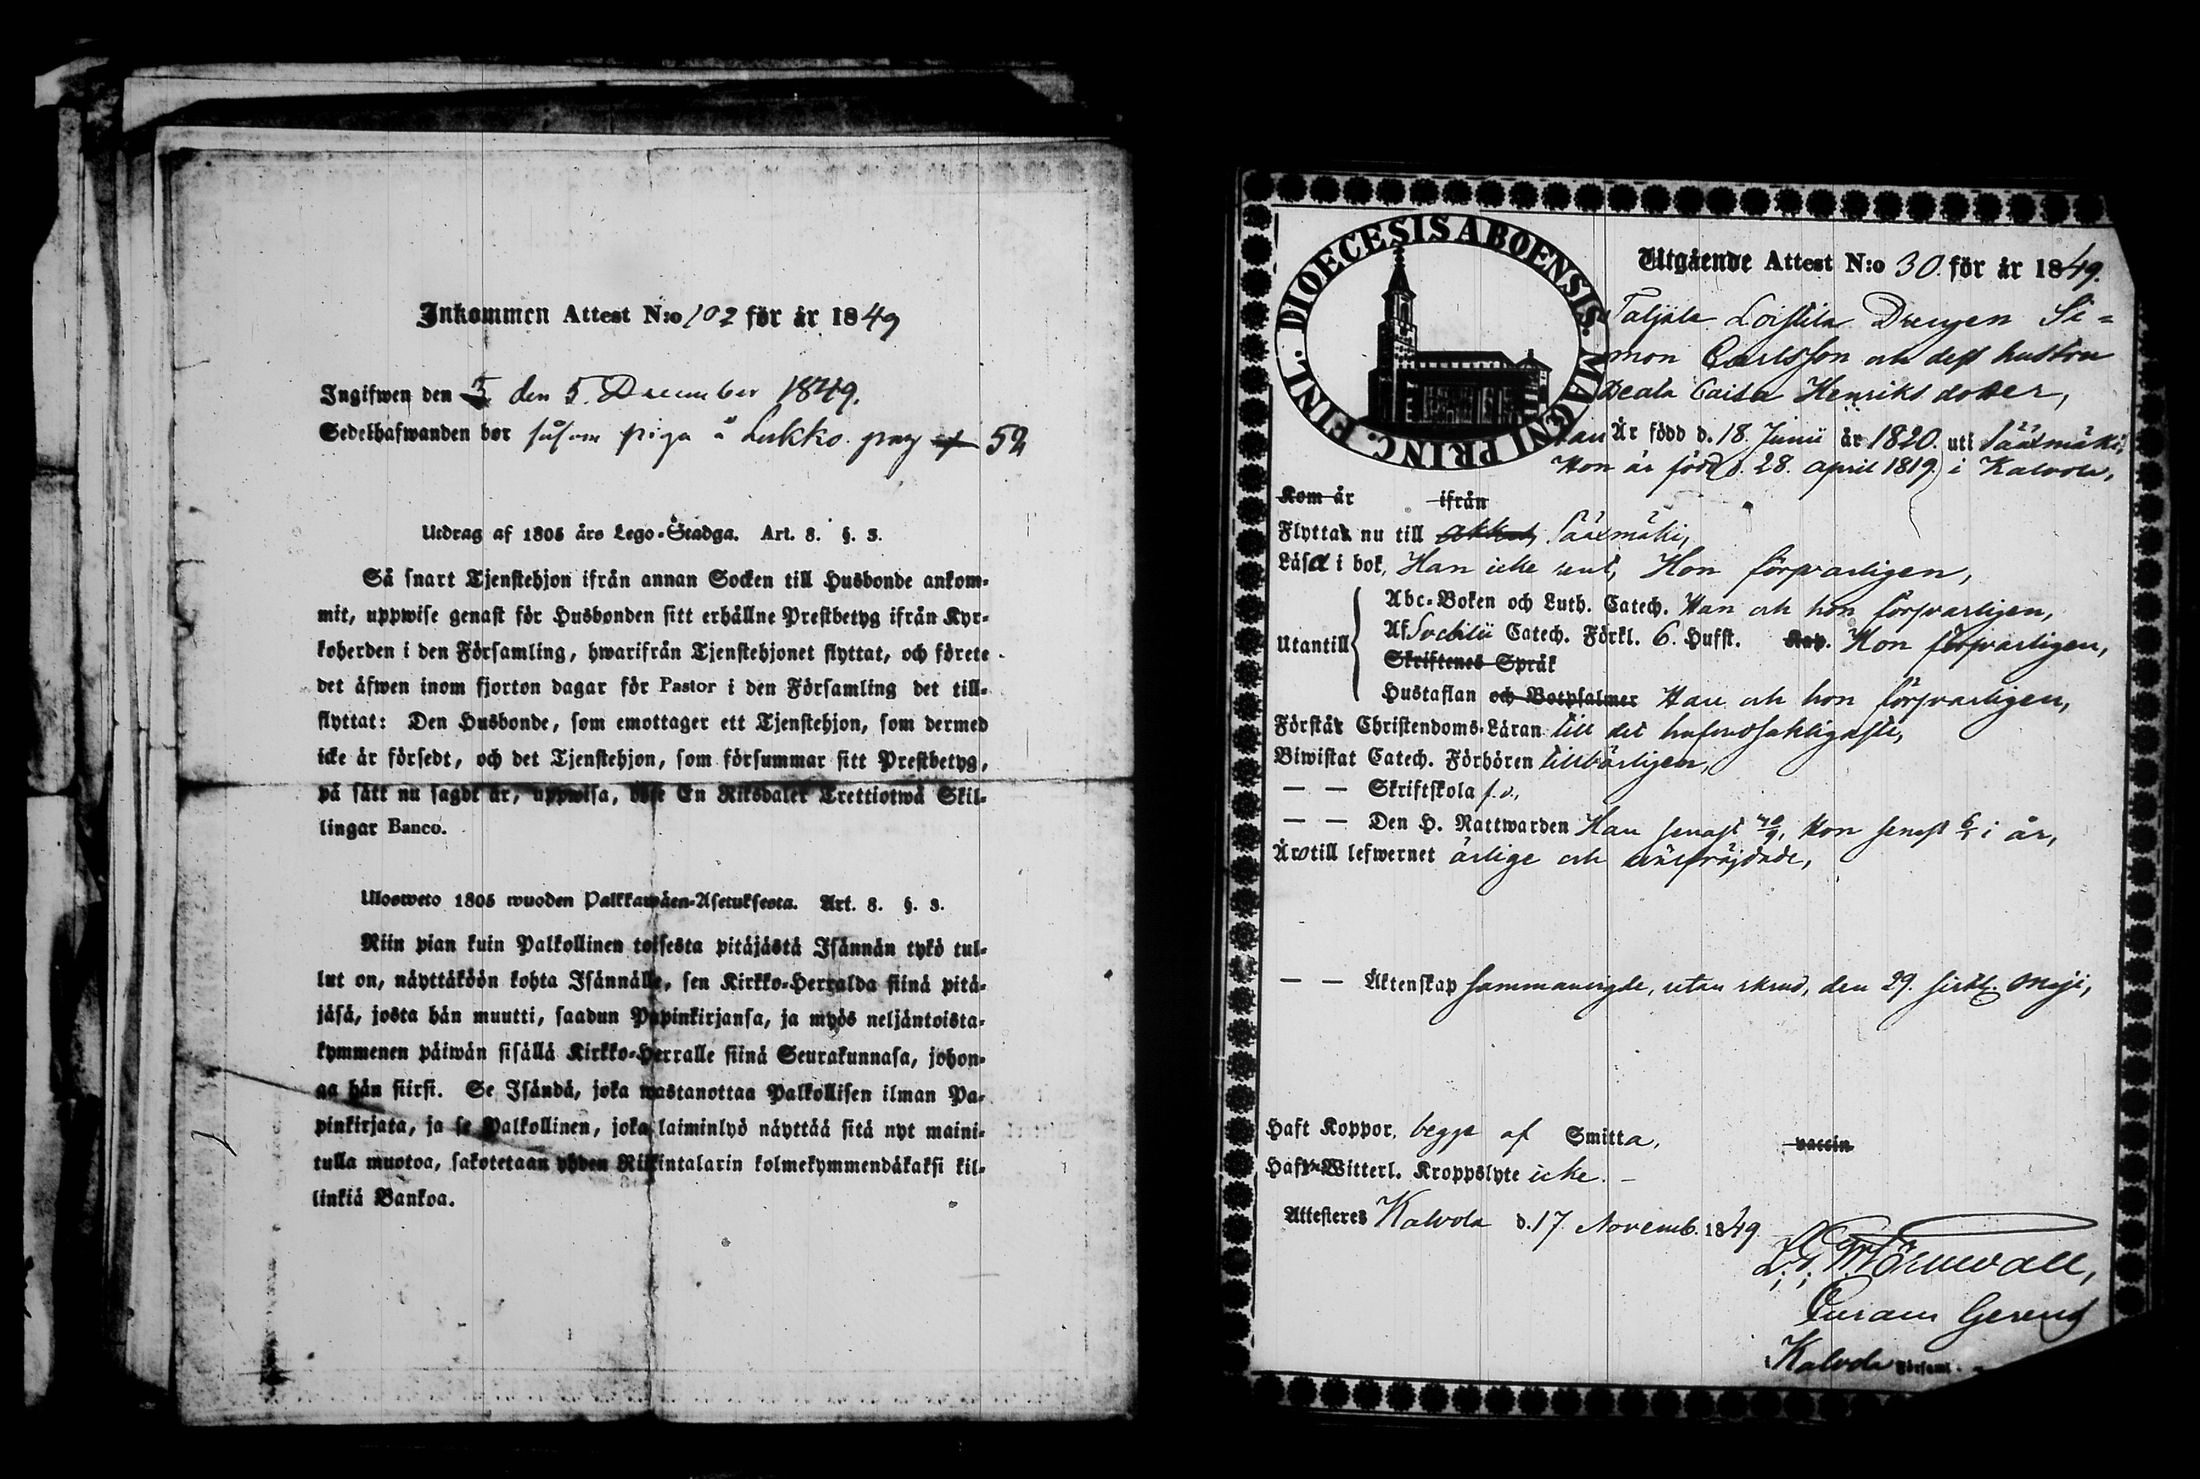 Inkommen Attest N:o 102 för år 1849
Ingifwen den 3 den 5. December 1849.
Sedelhafwanden bor såsom piga å Lukko. pag 52
Utdrag af 1805 års Lego-Stadga. Art. 8. §. 3.
Så snart Tjenstehjon ifrån annan Socken till Husbonde ankom-
mit, uppwise genast för Husbonden sitt erhållne Prestbetyg ifrån Kyr-
koherden i den Församling, hwarifrån Tjenstehjonet flyttat, och förete
det äfwen inom fjorton dagar för Pastor i den Församling det till-
flyttat: Den Husbonde, som emottager ett Tjenstehjon, som dermed
icke är försedt, och det Tjenstehjon, som försummar sitt Prestbetyg,
på sätt nu sagdt är, uppwisa, böte En Riksdaler Trettiotwå Skil-
lingar Banco.
Ulosweto 1805 wuoden Palkkawäen-Asetuksesta. Art. 8. §. 3.
Niin pian kuin Palkollinen toisesta pitäjästä Isännän tykö tul-
lut on, näyttäköön kohta Isännälle, sen Kirkko-Herralda siinä pitä-
jäsä, josta hän muutti, saadun Papinkirjansa, ja myös neljäntoista-
kymmenen päiwän sisällä Kirkko-Herralle siinä Seurakunnasa, johon-
ga hän siirsi. Se Isändä, joka wastanottaa Palkollisen ilman Pa-
pinkirjata, ja se Palkollinen, joka laiminlyö näyttää sitä nyt maini-
tulla muotoa, sakotetaan yhden Riikintalarin kolmekymmendäkaksi kil-
linkiä Bankoa.
DIOECESIS ABOENSIS. MAGNI PRINC. FINL.
Utgående Attest N:o 30 för år 1849.
Taljala Loistila Drengen Si=
mon Carlsson och dess hustru
Beata Caisa Henriksdotter,
Han är född d. 18. Junii år 1820. uti Sääxmäki,
Hon är född d. 28. april 1819. i Kalvola,
Kom år ifrån
Flytta nu till Sääxmäki,
Läsa i bok, Han icke rent, Hon försvarligen,
Utantill
Abc-Boken och Luth. Catech. Han och hon försvarligen,
Af Svebilii Catech. Förkl. 6. Hufst. Kap. Hon försvarligen,
Skriftenes Språk
Hustaflan och Botpsalmer Han och hon försvarligen,
Förstå Christendoms-Läran till det hufvudsakligaste,
Biwistat Catech. Förhören tillbörligen,
— — Skriftskola
— — Den H. Nattwarden Han senast Hon senast i år,
Äro till lefwernet ärlige och
— — Äktenskap sammanvigde, utan skrud, den 29. sistl. Maji,
Haft Koppor, begge af Smitta, vaccin
Haft Witterl. Kroppslyte icke. —
Attesteres Kalvola d. 17 Novemb. 1849
Curam Gerens
i Kalvola Församl.